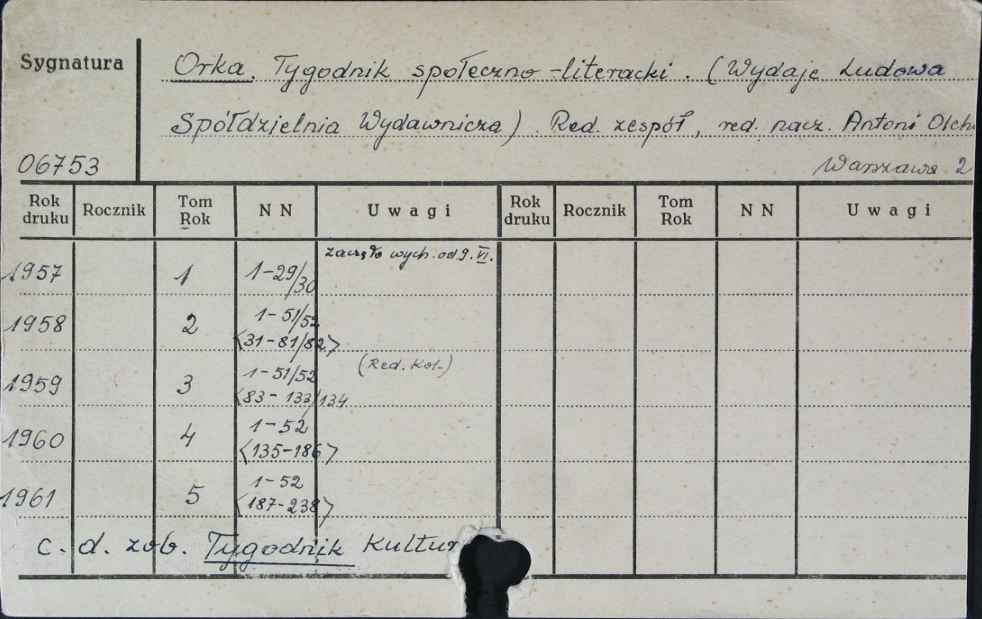 Sygnatura
Orka. Tygodnik społeczno-literacki. (Wydaje Ludowa
Spółdzielnia Wydawnicza). Red. zespół, red. nacz. Antoni Olch
06753
Warszawa 2
Rok druku Rocznik Tom Rok NN Uwagi Rok druku Rocznik Tom Rok NN Uwagi
zaczęło wych. od 9. VI.
1957 1 1-29/30
1958 2 1-51/52
<31-81/82>
(Red. Kol.)
1959 3 1-51/52
<83-133/134
1960 4 1-52
<135-186>
1961 5 1-52
<187-238>
c. d. zob. Tygodnik Kultur